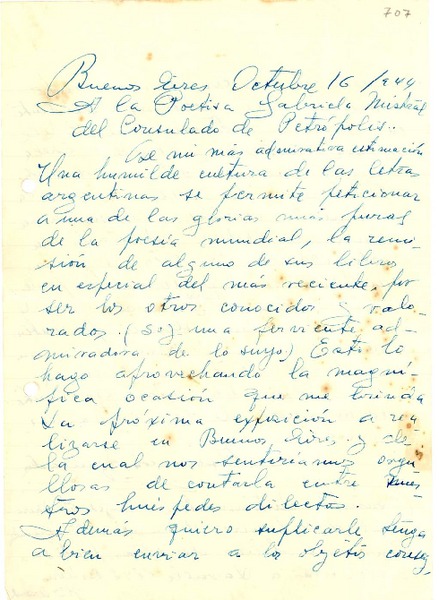 707
Buenos Aires Octubre 16/944
A la Poetisa Gabriela Mistral
del Consulado de Petrópolis.
De mi más admirativa estimación
Una humilde cultora de las letras
argentinas se permite peticionar
a una de las glorias más puras
de la poesía mundial, la remi-
sión de alguno de sus libros
en especial del más reciente, por
ser los otros conocidos y valo-
rados. (Soy una ferviente ad-
miradora de lo suyo) Esto lo
hago aprovechando la magní-
fica ocasión que me brinda
La próxima exposición a rea
lizarse en Buenos Aires y de
la cual nos sentiríamos orgu
llosas de contarla entre nues
tros huéspedes dilectos.
Además quiero suplicarle tenga
a bien enviar a los objetos